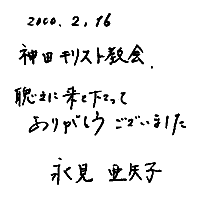 2000.2.16
神田キリスト教会.
聴きに来て下さって
ありがとうございました
永見 亜矢子